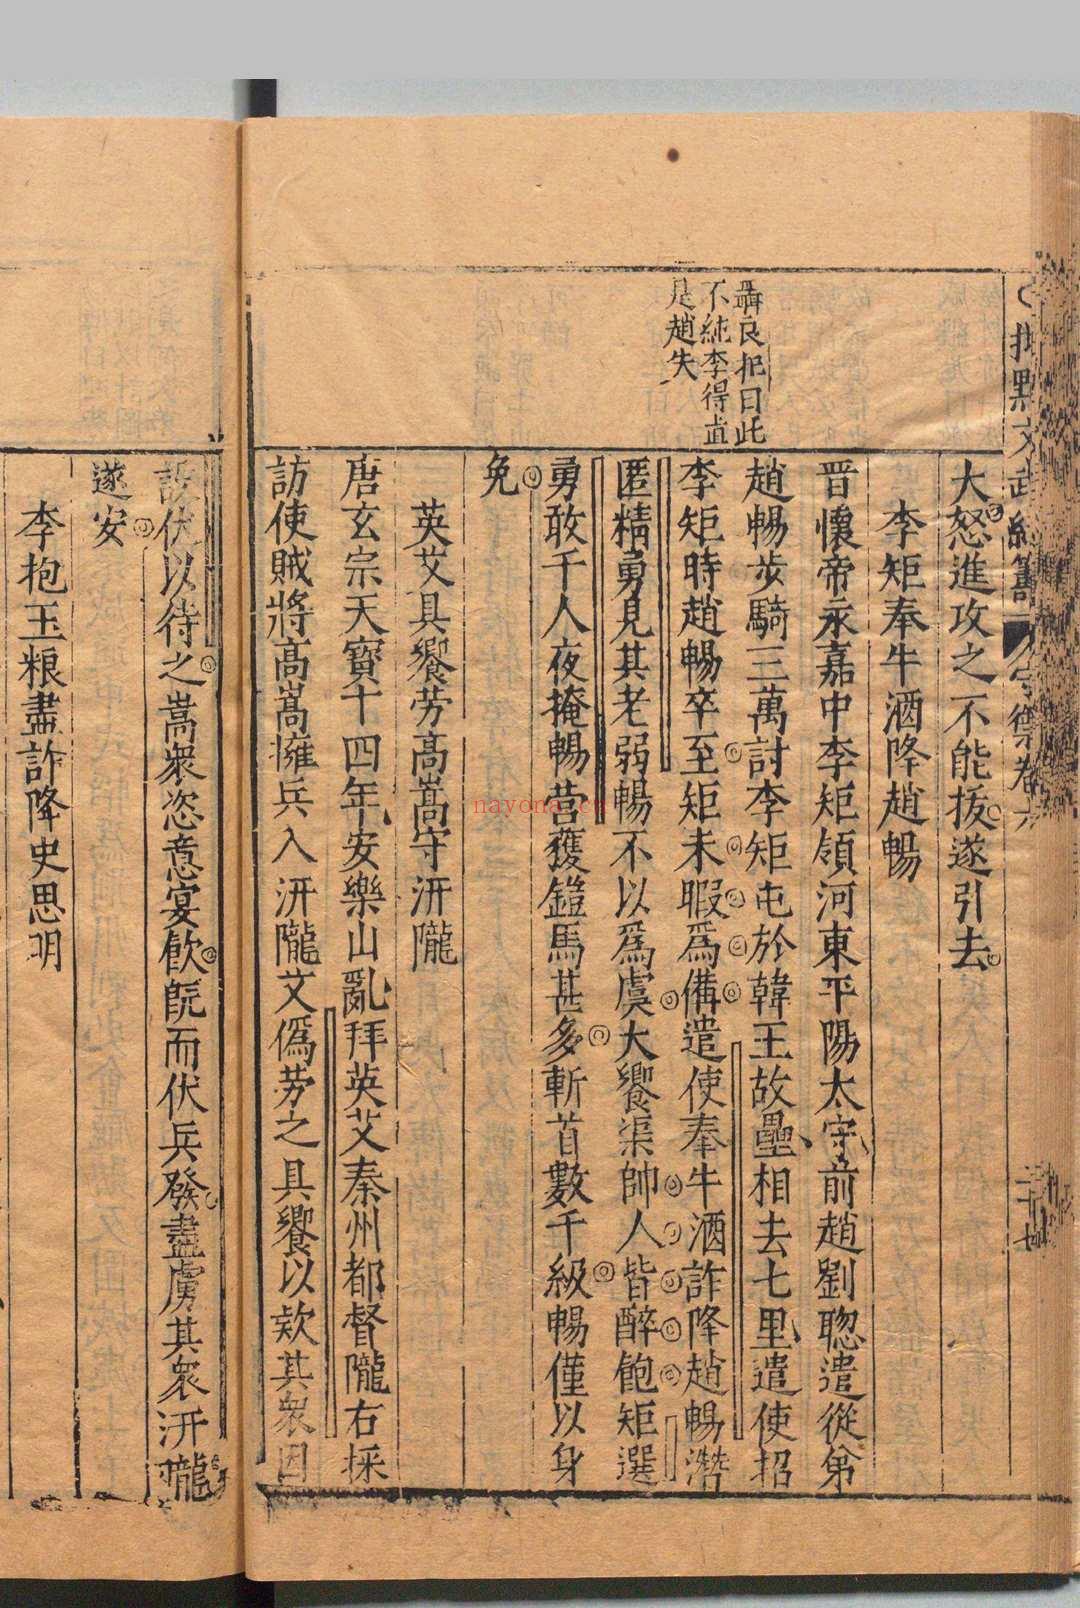 批點文武經籌 守禦卷六
大怒進攻之不能拔遂引去
李矩奉牛酒降趙暢
晉懷帝永嘉中李矩領河東平陽太守前趙劉聰遣從弟
趙暢步騎三萬討李矩屯於韓王故壘相去七里遣使招
李矩時趙暢卒至矩未暇爲備遣使奉牛酒詐降趙暢潛
匿精勇見其老弱暢不以爲虞大饗渠帥人皆醉飽矩選
勇敢千人夜掩暢營獲鎧馬甚多斬首數千級暢僅以身
免
聶良杞曰此
不純李得
是趙失
英艾具饗勞高嵩守汧隴
唐玄宗天寶十四年安樂山亂拜英艾秦州都督隴右採
訪使賊將高嵩擁兵入汧隴文僞勞之具饗以欵其衆因
設伏以待之嵩衆恣意宴飲旣而伏兵發盡虜其衆汧隴
遂安
李抱玉粮盡詐降史思明
nayona.cn